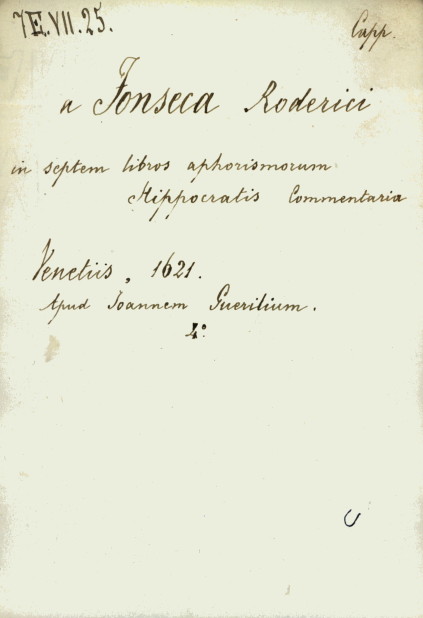 7E.VII.25.
Capp.
a Fonseca Roderici
in septem libros aphorismorum
Hippocratis Commentaria
Venetiis, 1621.
Apud Ioannem Guerilium.
4°
C